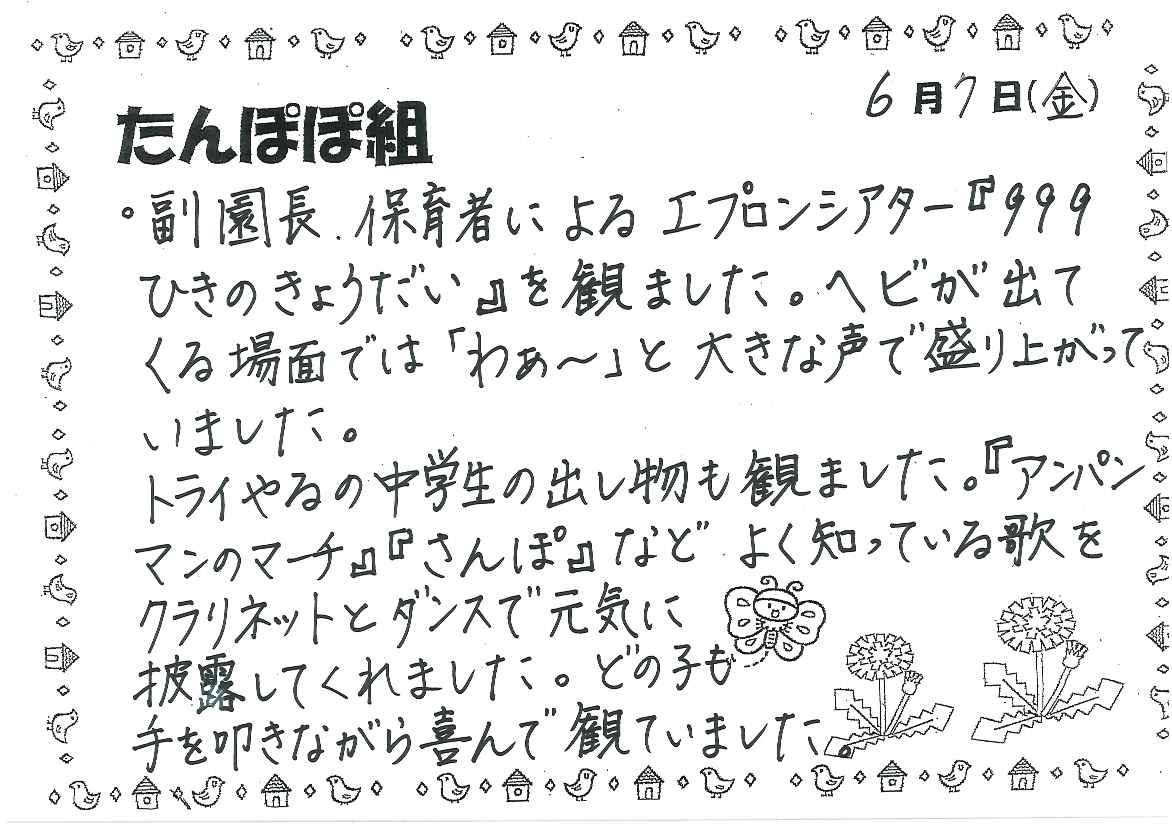 6月7日(金)
たんぽぽ組
。副園長、保育者によるエプロンシアター『999
ひきのきょうだい』を観ました。ヘビが出て
くる場面では「わぁ〜」と大きな声で盛り上がって
いました。
トライやるの中学生の出し物も観ました。『アンパン
マンのマーチ』『さんぽ』などよく知っている歌を
クラリネットとダンスで元気に
披露してくれました。どの子も
手を叩きながら喜んで観ていました。